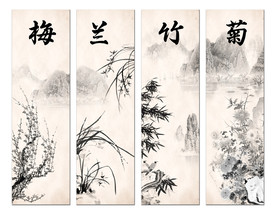 梅
兰
竹
菊